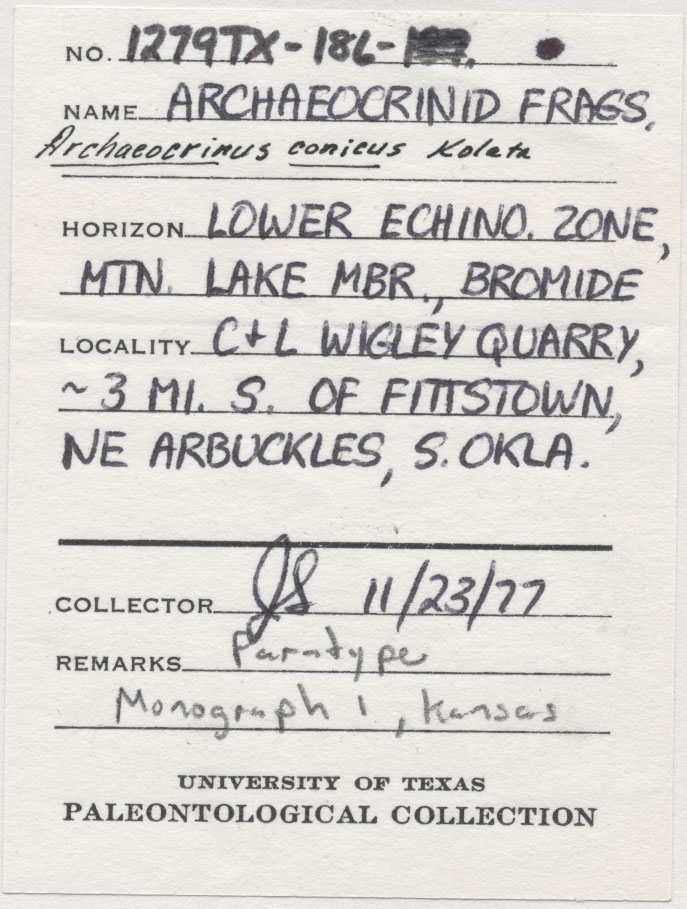 NO. 1279TX-186-
NAME ARCHAEOCRINID FRAGS,
Archaeocrinus conicus Kolata
HORIZON LOWER ECHINO. ZONE,
MTN. LAKE MBR., BROMIDE
LOCALITY C+L WIGLEY QUARRY,
~3 MI. S. OF FITTSTOWN,
NE ARBUCKLES, S. OKLA.
COLLECTOR JS 11/23/77
REMARKS Paratype
Monograph 1, Kansas
UNIVERSITY OF TEXAS
PALEONTOLOGICAL COLLECTION